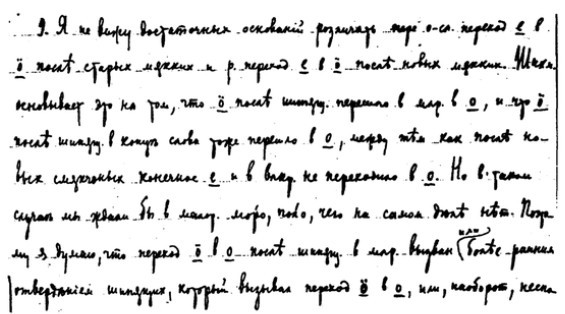 9. Я не вижу достаточных оснований различать переход е в
ö послѣ старых мягких и р. переход е в ö послѣ новых мягких. Шахм.
основывает это на том, что ö послѣ шипящ. перешло в мар. в о, и что ö
послѣ шипящ. в концѣ слова тоже перешло в о, между тѣм как послѣ но-
вых смягченых конечное е и в влкр. не переходило в о. Но в таком
случаѣ мы ждали бы в малор. моро, поло, чего на самом дѣлѣ нѣт. Поэто
му я думаю, что переход ö в о послѣ шипящ. в мар. вызван (или болѣе ранним
отвердѣнiем шипящих, который вызывал переход ö в о, или, наоборот, неспо